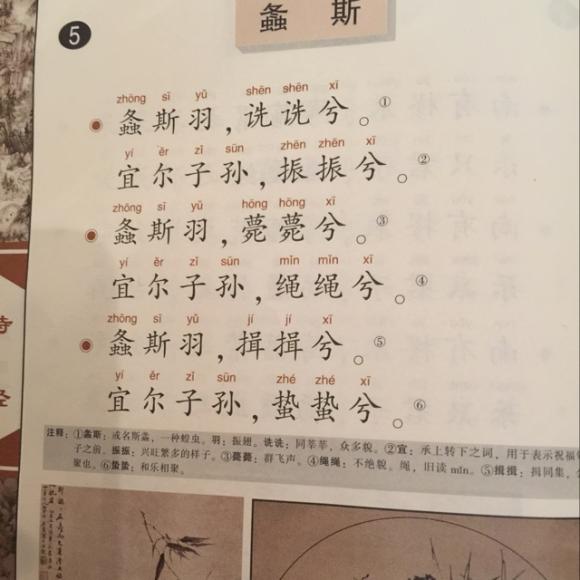 5
螽 斯
zhōng sī yǔ shēn shēn xī
螽斯羽，诜诜兮。①
yí ěr zǐ sūn zhēn zhēn xī
宜尔子孙，振振兮。②
zhōng sī yǔ hōng hōng xī
螽斯羽，薨薨兮。③
yí ěr zǐ sūn mǐn mǐn xī
宜尔子孙，绳绳兮。④
zhōng sī yǔ jí jí xī
螽斯羽，揖揖兮。⑤
yí ěr zǐ sūn zhé zhé xī
宜尔子孙，蛰蛰兮。⑥
注释：①螽斯：或名斯螽，一种蝗虫。羽：振翅。诜诜：同莘莘，众多貌。②宜：承上转下之词，用于表示祝福
子之前。振振：兴旺繁多的样子。③薨薨：群飞声。④绳绳：不绝貌。绳，旧读mǐn。⑤揖揖：揖同集，
聚也。⑥蛰蛰：和乐相聚。
诗
经